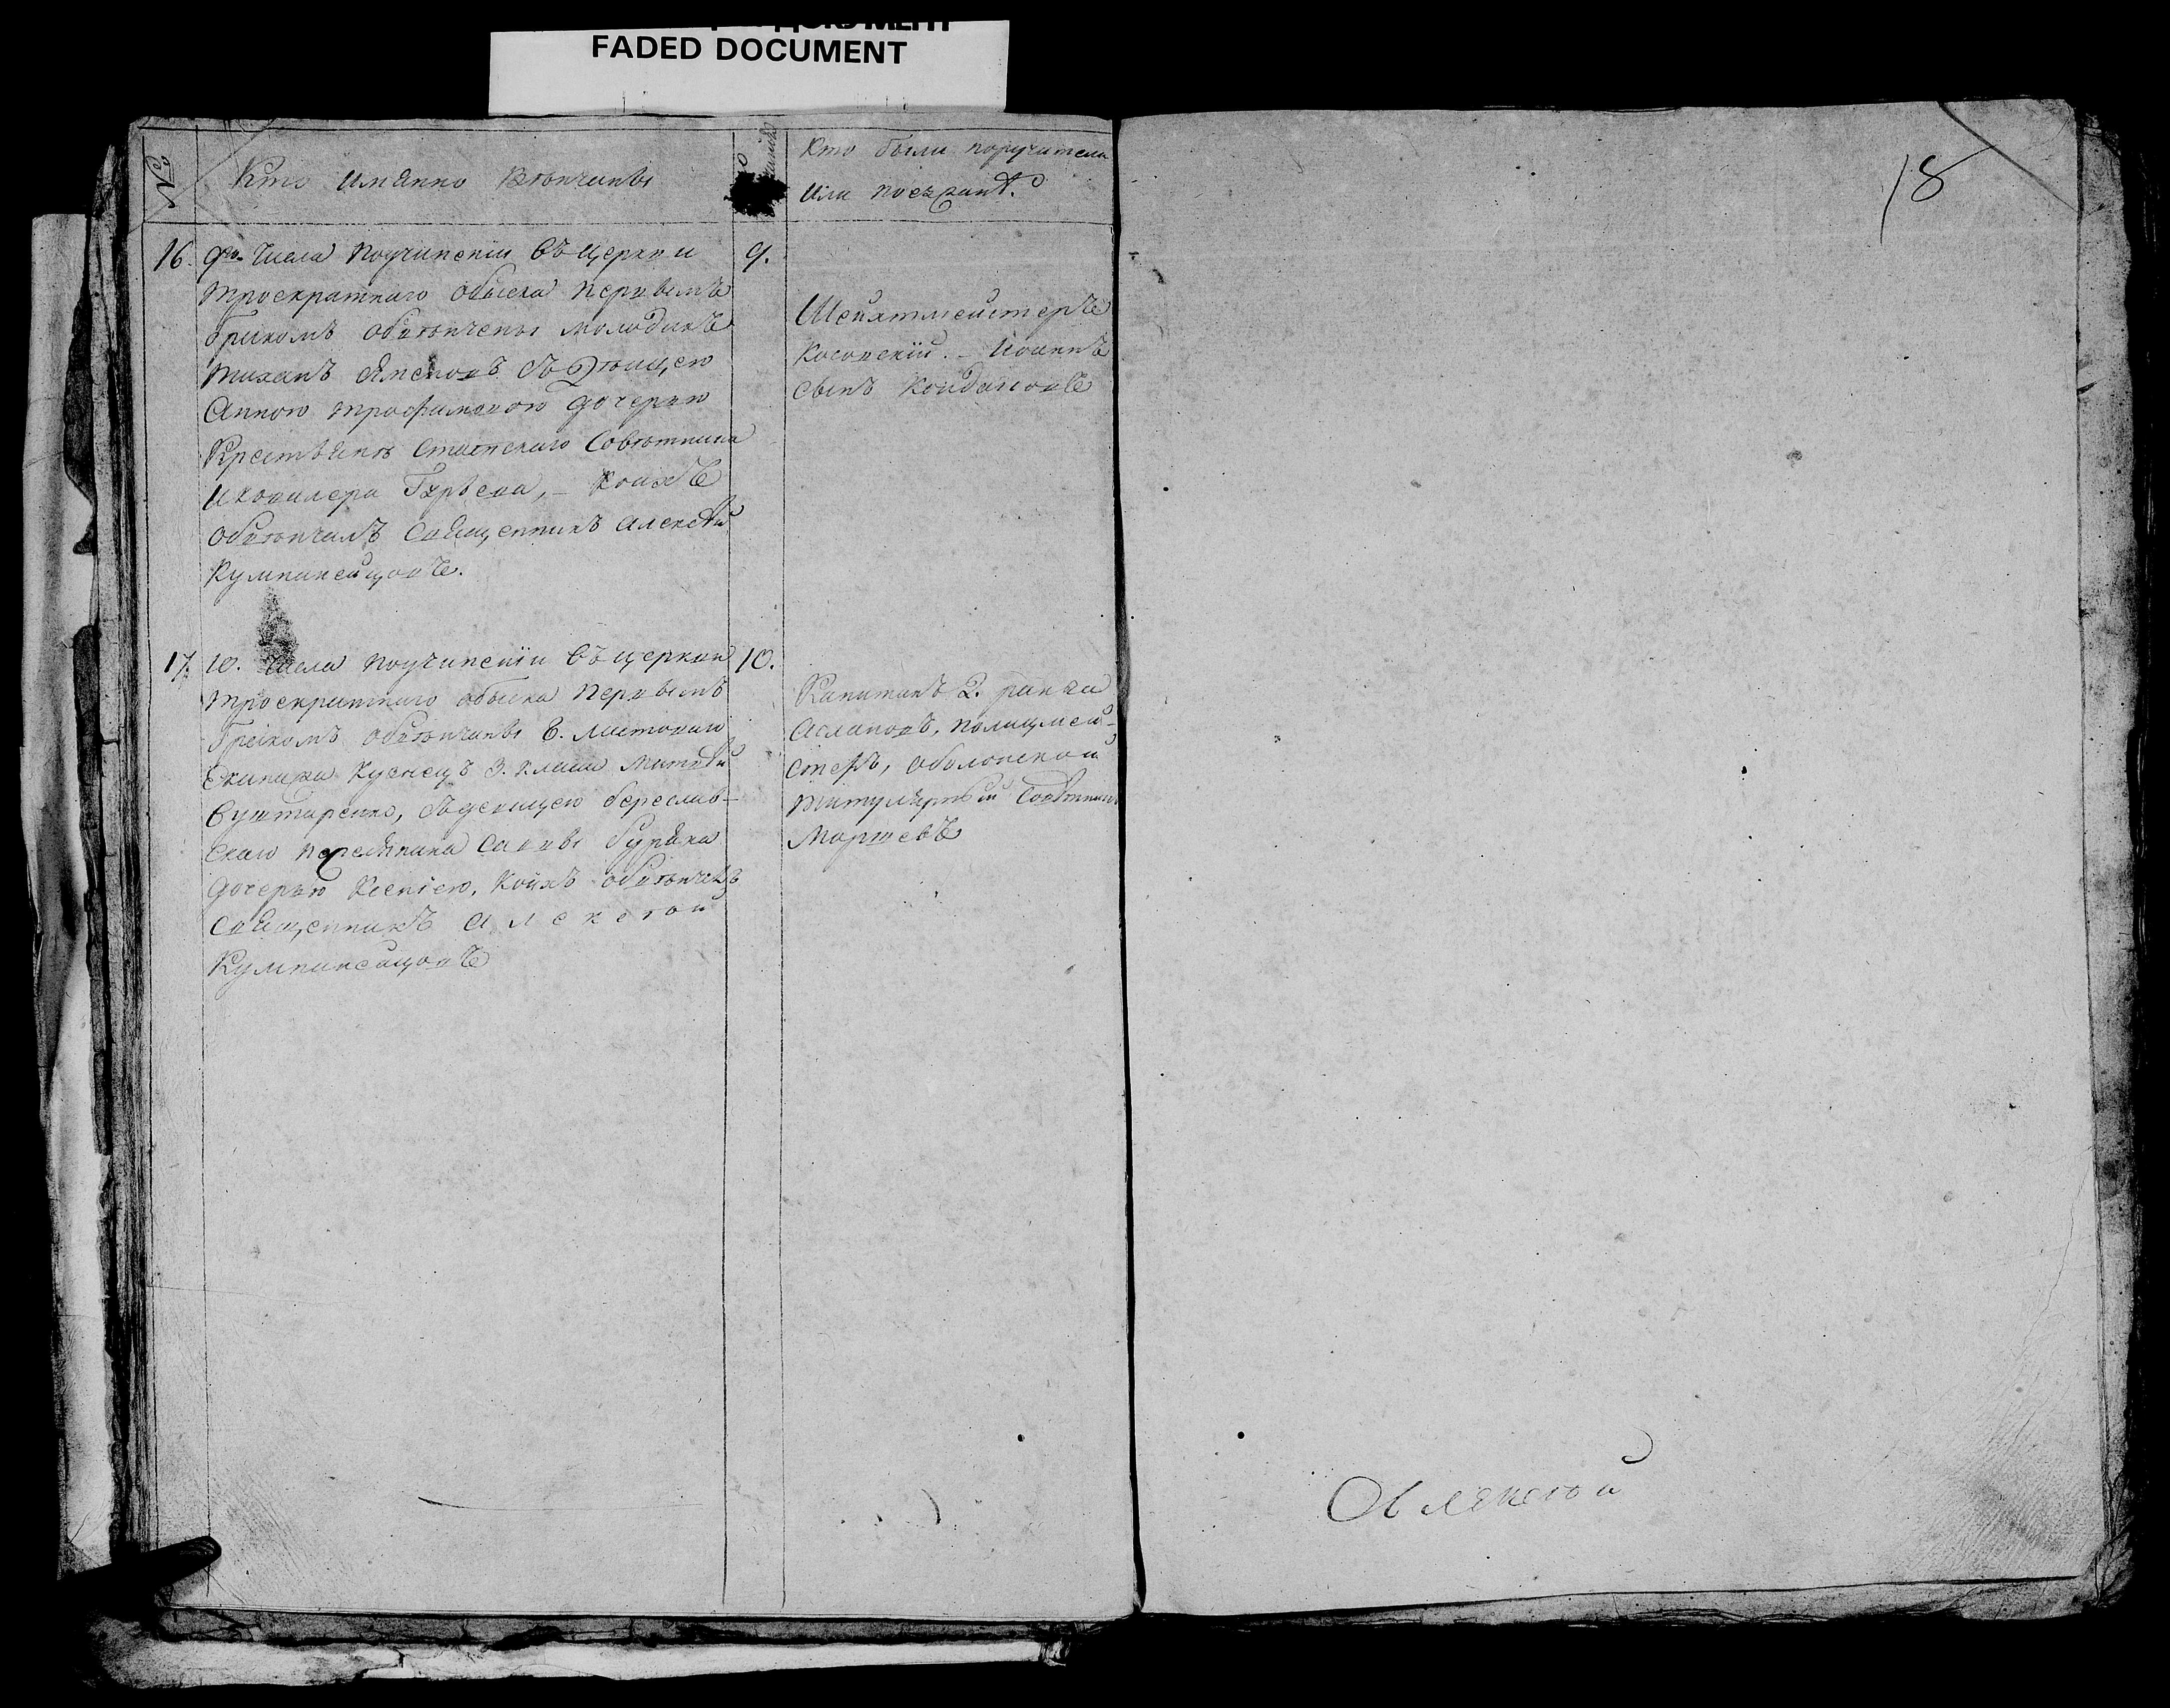 FADED DOCUMENT
№
Кто имянно вѣнчаны
Кто были поручители
или поезжанѣ.
16.
9го числа поучиненіи въ церкви
троекратнаго обыска первымъ
бракомъ обвѣнчены молодикъ
съ дѣвицею
Анною трофимовою дочерью
Крестьянъ статскаго Совѣтника
икавалера Гурьева, – коихъ
обвѣнчалъ Священникъ Алексѣй
Кумпансицовъ.
9.
Шейхтмейстеръ
Косовскій. – Иоаннъ
сынъ
17.
10. числа поучиненіи въ церкви
троекратнаго обыска первымъ
бракомъ обвѣнчаны 6. ластоваго
Екипажа кузнецъ 3. класа Матвѣй
съдевицею береслав-
скаго Саввы буряка
дочерью Ксеніею, коихъ обвѣнчалъ
Священникъ Алексѣй
Кумпансицовъ
10.
Капитанъ 2. ранга
Аслановъ, полицмей-
стеръ, оболонской
титулярный Совѣтникъ
Маршевъ
18
Алексѣй